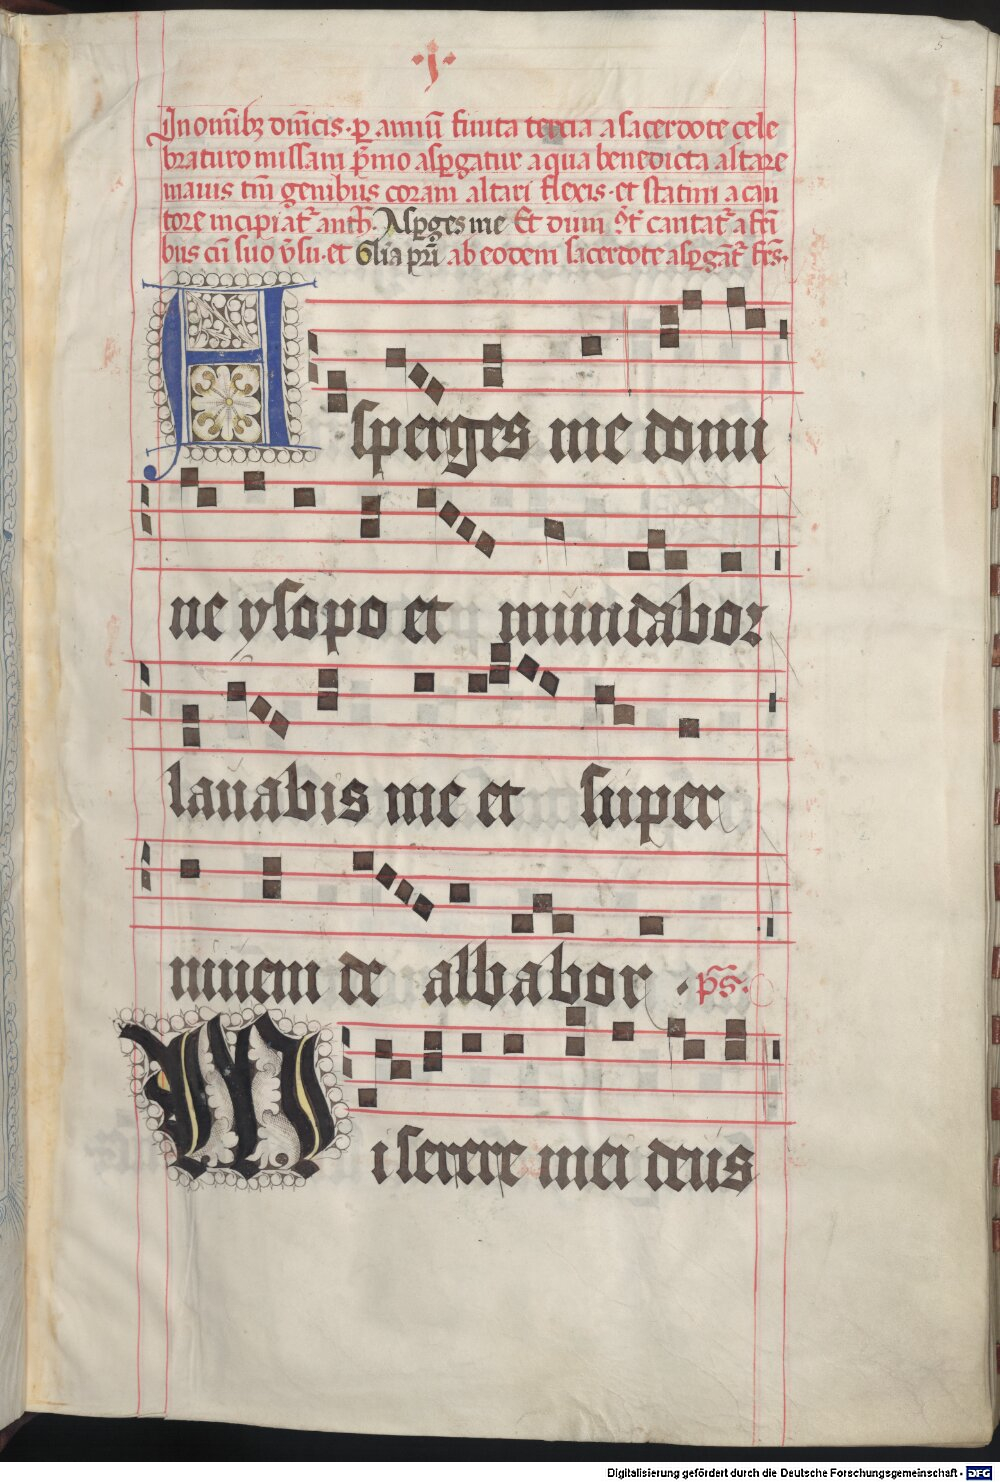 ·j·
5
In om̄ibꝫ dn̄icis · ꝑ annū finita tercia a sacerdote cele
braturo missam p̄mo aspgatur aqua benedicta altare
maius tm̄ genibus coram altari flexis · et statim a can
tore incipiat᷑ anth̄ · Asꝑges me Et dum
cantat᷑ a fr̄i
bus cū suo v̄su · et Gl̄ia pr̄i ab eodem sacerdote aspgāt᷑ fr̄s ·
Asperges me domi
ne ysopo et mundaboꝛ
lauabis me et super
niuem de albabor · p̄s ·
Miserere mei deus
Digitalisierung gefördert durch die Deutsche Forschungsgemeinschaft - DFG